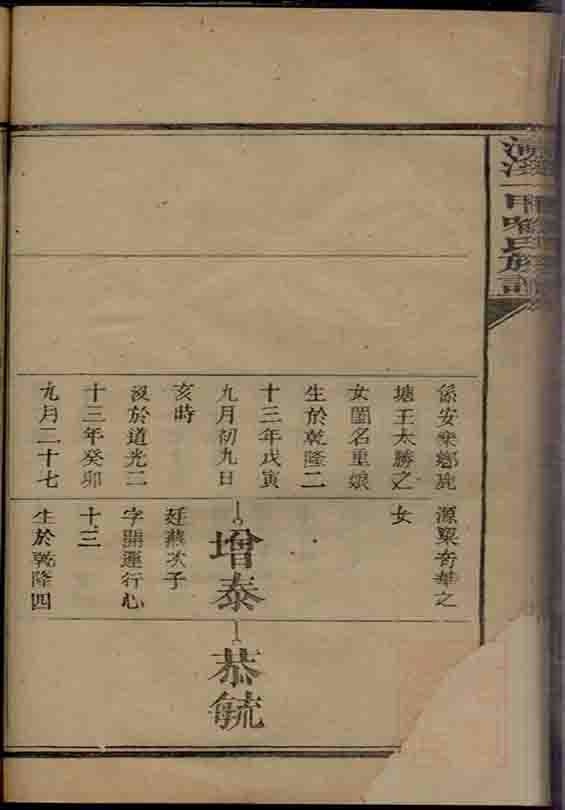 係安樂鄉㡳
塘王太勝之
女閨名重娘
生於乾隆二
十三年戊寅
九月初九日
亥時
沒於道光二
十三年癸卯
九月二十七
源梁奇華之
女
增泰
廷燕次子
字開運行心
十三
生於乾隆四
恭毓